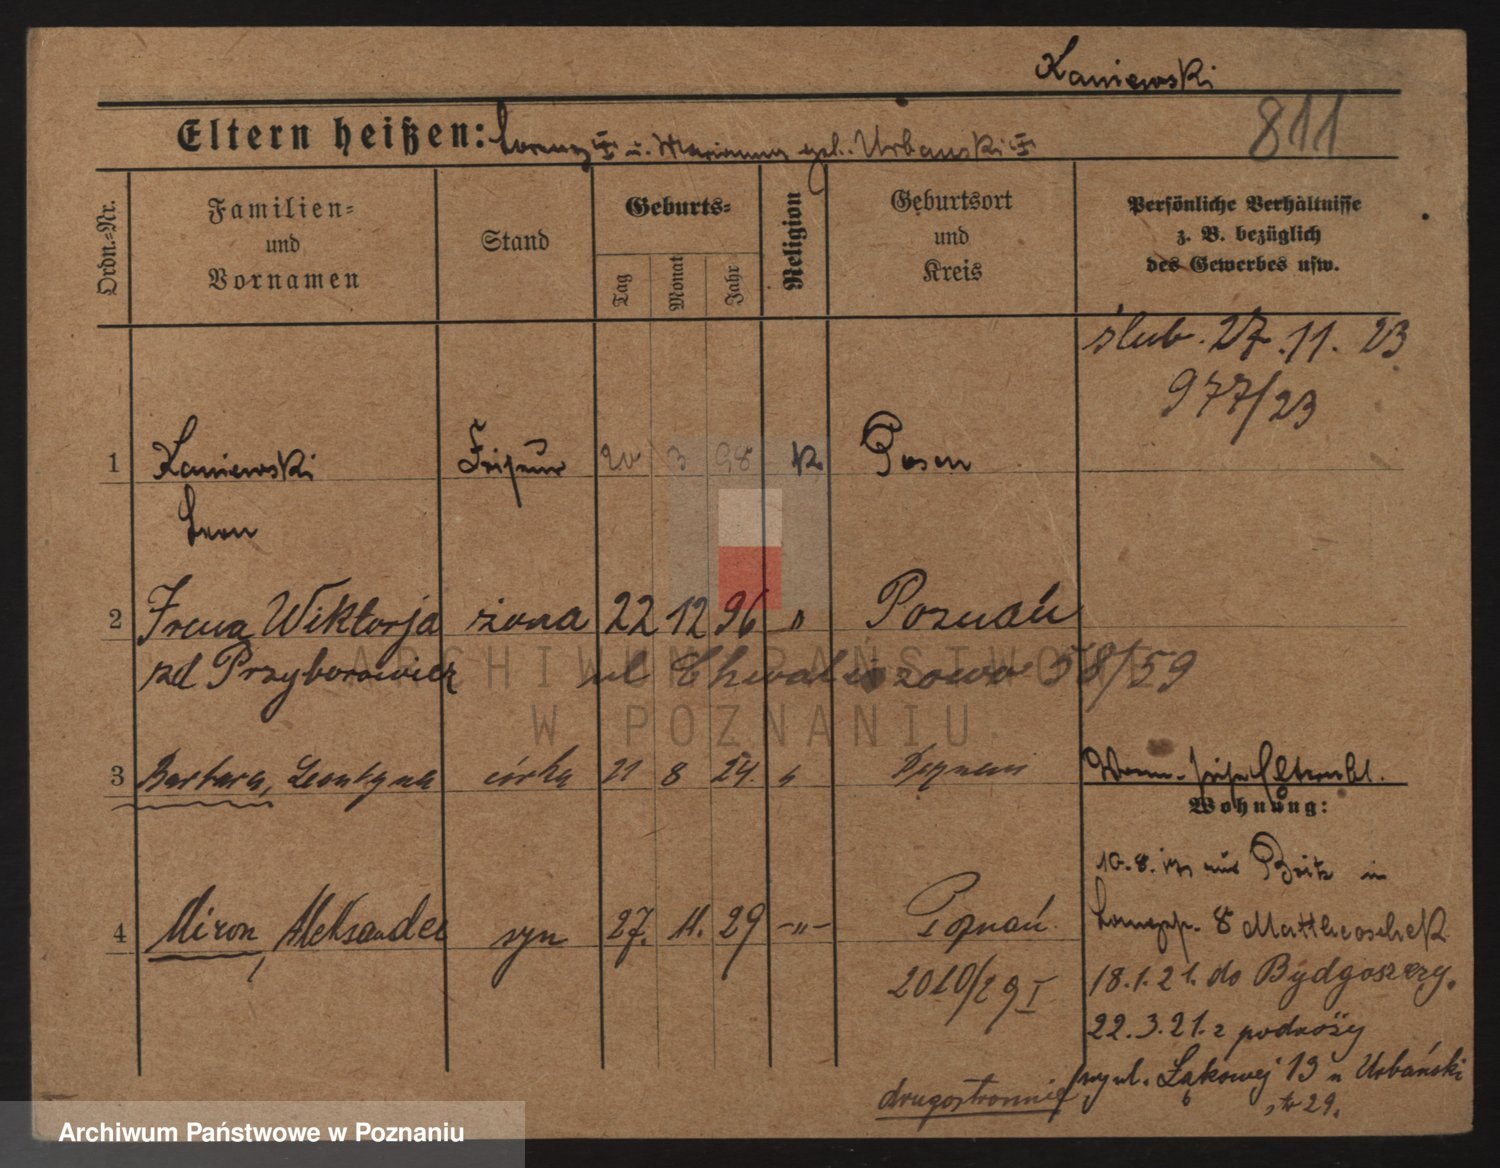 Kaniewski
Eltern heißen: Lorenz u. Marianna geb. Urbanski
811
Ordn.-Nr.
Familien-
und
Vornamen
Stand
Geburts-
Tag
Monat
Jahr
Religion
Geburtsort
und
Kreis
Persönliche Verhältnisse
z. B. bezüglich
des Gewerbes usw.
ślub. 27.11.23
977/23
1 Kaniewski Friseur 20 3 98 K. Posen
Leon
2 Irena Wiktorja żona 22 12 96 " Poznań
zd Przyborowicz ul Chwaliszewo 58/59
3 Barbara, Leontyna córka 21 8 24. " Poznań
Wohnung:
10.8. aus Britz in
8 Mattheoschek
4 Miron, Aleksander syn 27. 11. 29 -"- Poznań.
18.1.21. do Bydgoszczy.
2010/29 I
22.3.21. z podróży
ul. Łąkowej 13 u Urbański
str 29.
drugostronnie
ARCHIWUM PAŃSTWOWE
W POZNANIU
Archiwum Państwowe w Poznaniu